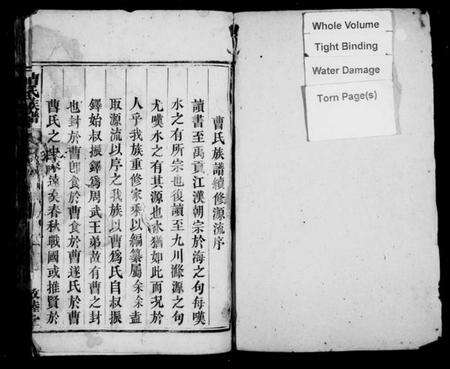 曹氏族譜續修源流序
讀書至禹貢江漢朝宗於海之句每嘆
水之有所宗也後讀至九川滌源之句
尤嘆水之有其源也水猶如此而況於
人乎我族重修家乘以編纂屬余余盍
取源流以序之我族以曹爲氏自叔振
鐸始叔振鐸爲周武王弟故有曹之封
也封於曹卽食於曹食於曹遂氏於曹
曹氏之來遠矣春秋戰國或推賢於
曹氏族譜
Whole Volume
Tight Binding
Water Damage
Torn Page(s)